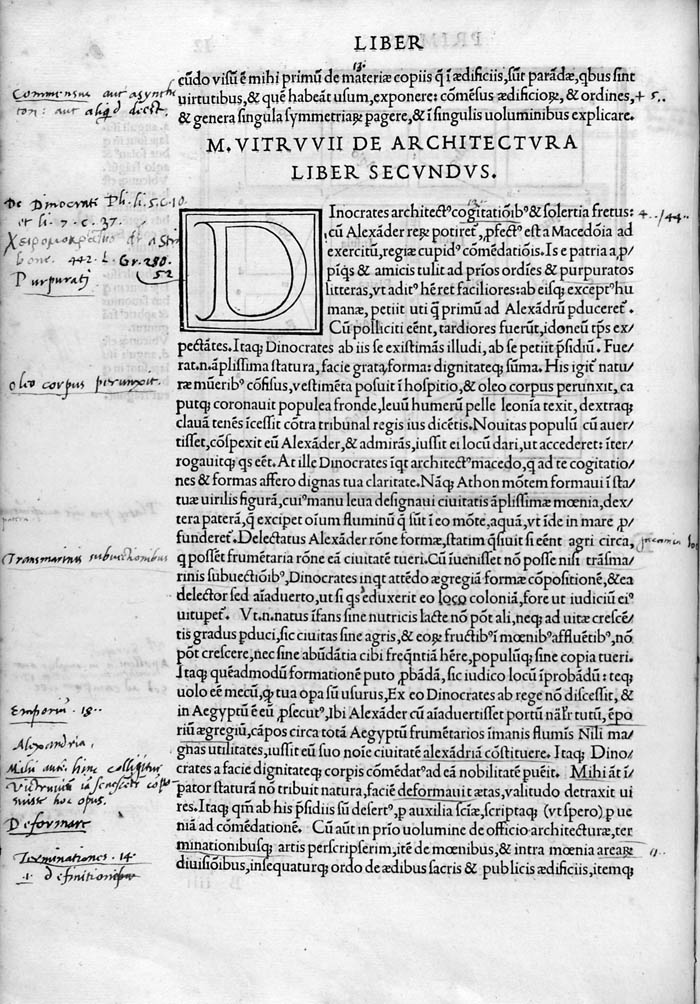 LIBER
cūdo visū ē mihi primū de materiæ copiis q̄ ī ædificiis, sūt parādæ, qbus sint
virtutibus, & quē habeāt usum, exponere: cōmēsus ædificioꝝ, & ordines,
& genera singula symmetriaꝝ pagere, & ī singulis uoluminibus explicare.
M. VITRVVII DE ARCHITECTVRA
LIBER SECVNDVS.
DInocrates architectꝰ cogitatiōibꝰ & solertia fretus:
cū Alexāder reꝝ potiretꝰ, ꝓfectꝰ est a Macedōia ad
exercitū, regiæ cupidꝰ cōmēdatiōis. Is e patria a, p/
pīqs & amicis tulit ad prīos ordīes & purpuratos
litteras, vt aditꝰ hēret faciliores: ab eisqꝫ exceptꝰ hu
manæ, petiit uti q̄ primū ad Alexādrū pduceretꝰ.
Cū polliciti eēnt, tardiores fuerūt, idoneū tp̄s ex/
pectātes. Itaqꝫ Dinocrates ab iis se existimās illudi, ab se petiit p̄sidiū. Fue/
rat. n. āplissima statura, facie grata, forma: dignitateqꝫ sūma. His igitꝰ natu/
ræ mūeribꝰ cōfisus, vestimēta posuit ī hospitio, & oleo corpus perunxit, ca
putqꝫ coronauit populea fronde, leuū humerū pelle leonīa texit, dextraqꝫ
clauā tenēs īcessit cōtra tribunal regis ius dicētis. Nouitas populū cū auer/
tisset, cōspexit eū Alexāder, & admirās, iussit ei locū dari, ut accederet: īter/
rogauitqꝫ qs eēt. At ille Dinocrates īqt architectꝰ macedo, q ad te cogitatio/
nes & formas affero dignas tua claritate. Nāqꝫ Athon mōtem formaui ī sta/
tuæ uirilis figurā, cuiꝰ manu leua designaui ciuitatis āplissimæ mœnia, dex/
tera paterā, q excipet oīum fluminū q̄ sūt ī eo mōte, aquā, vt īde in mare ꝓ/
funderetꝰ. Delectatus Alexāder rōne formæ, statim q̄siuit si eēnt agri circa,
q possēt frumētaria rōne eā ciuitatē tueri. Cū īuenisset nō posse nisi trāsma/
rinis subuectiōibꝰ, Dinocrates inqt attēdo ægregiā formæ cōpositionē, & ea
delector sed aīaduerto, ut si qs eduxerit eo loco coloniā, fore ut iudiciū eiꝰ
uitupetꝰ. Vt. n. natus īfans sine nutricis lacte nō pōt ali, neqꝫ ad uitæ crescē/
tis gradus pduci, sic ciuitas sine agris, & eoꝝ fructibꝰ ī mœnibꝰ affluētibꝰ, nō
pōt crescere, nec sine abūdātia cibi freqntiā hēre, populūqꝫ sine copia tueri.
Itaqꝫ quēadmodū formationē puto ꝓbādā, sic iudico locū īprobādū: teqꝫ
uolo eē mecū, qꝫ tua opa sū usurus, Ex eo Dinocrates ab rege nō discessit, &
in Aegyptū ē eū ꝓsecutꝰ, ibi Alexāder cū aīaduertisset portū nālr̄ tutū, ēpo
riū ægregiū, cāpos circa totā Aegyptū frumētarios īmanis flumīs Nili ma/
gnas utilitates, iussit eū suo noīe ciuitatē alexādriā cōstituere. Itaqꝫ Dino/
crates a facie dignitateqꝫ corpis cōmēdatꝰ ad eā nobilitatē puēit. Mihi āt ī/
pator staturā nō tribuit natura, faciē deformauit ætas, valitudo detraxit ui
res. Itaqꝫ qm̄ ab his p̄sidiis sū desertꝰ, p auxilia scīæ, scriptaqꝫ (vt spero) p ue
niā ad cōmēdationē. Cū aūt in prīo uolumine de officio architecturæ, ter
minationibusqꝫ artis perscripserim, itē de mœnibus, & intra mœnia areaꝝ
diuisiōibus, insequaturqꝫ ordo de ædibus sacris & publicis ædificiis, itemqꝫ
13.
Commensus aut asynthe
ton: aut aliqd deest.
+ 5..
De Dinocrate Pli. li. 5. c. 10.
et li. 7. c. 37.
442. L. Gr. 250.
52
Purpuratj
oleo corpus perunxit.
Transmarinis subuectionibus
Emporiū. 18..
Alexandria.
Mihi aut. hinc colligitur
Vitruuiū iā senescētē cōpo
suisse hoc opus.
Deformare
Terminationes. 14